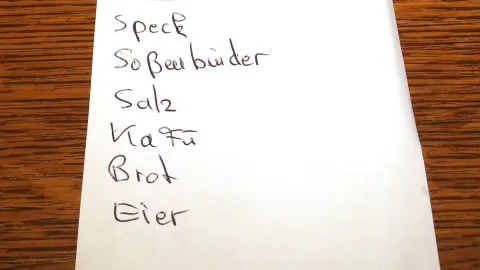 Speck
Soßenbinder
Salz
KlaFü
Brot
Eier